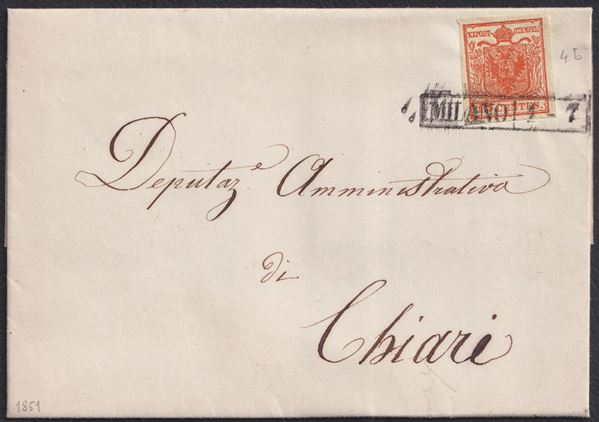 KKPOST-STEMPEL
4 b
CENTES.
MILANO 7
Deputaz.e Amministrativa
di
Chiari
1851